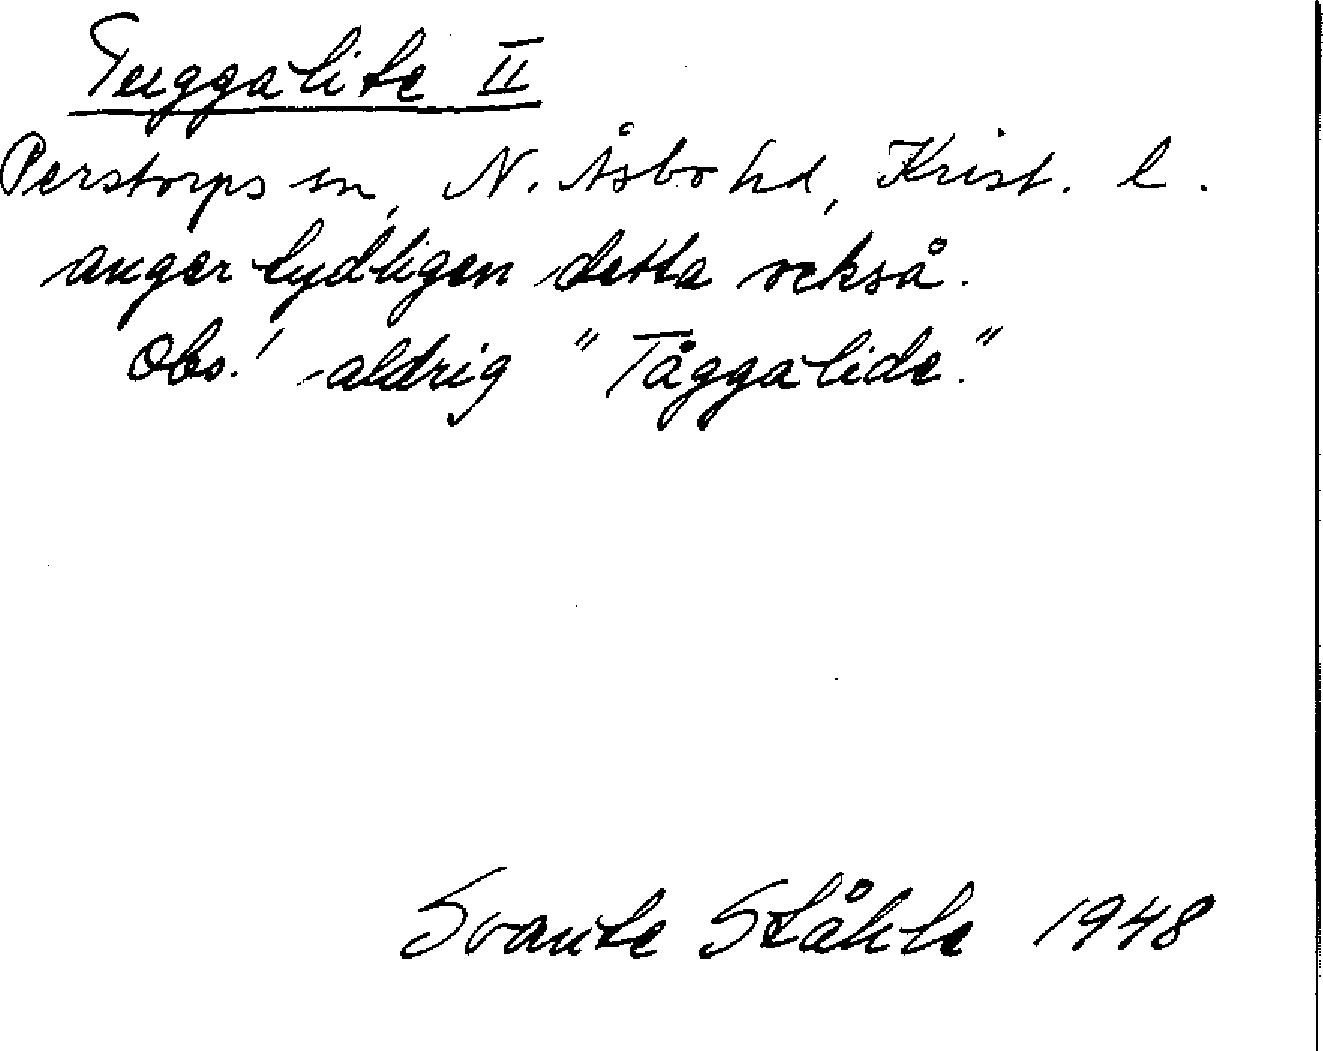 Tuggalite II
Perstorps sn, N. Åsbo hd, Krist. l.
anger tydligen detta också.
Obs.! aldrig "Tåggalide."
Svante Ståhle 1948